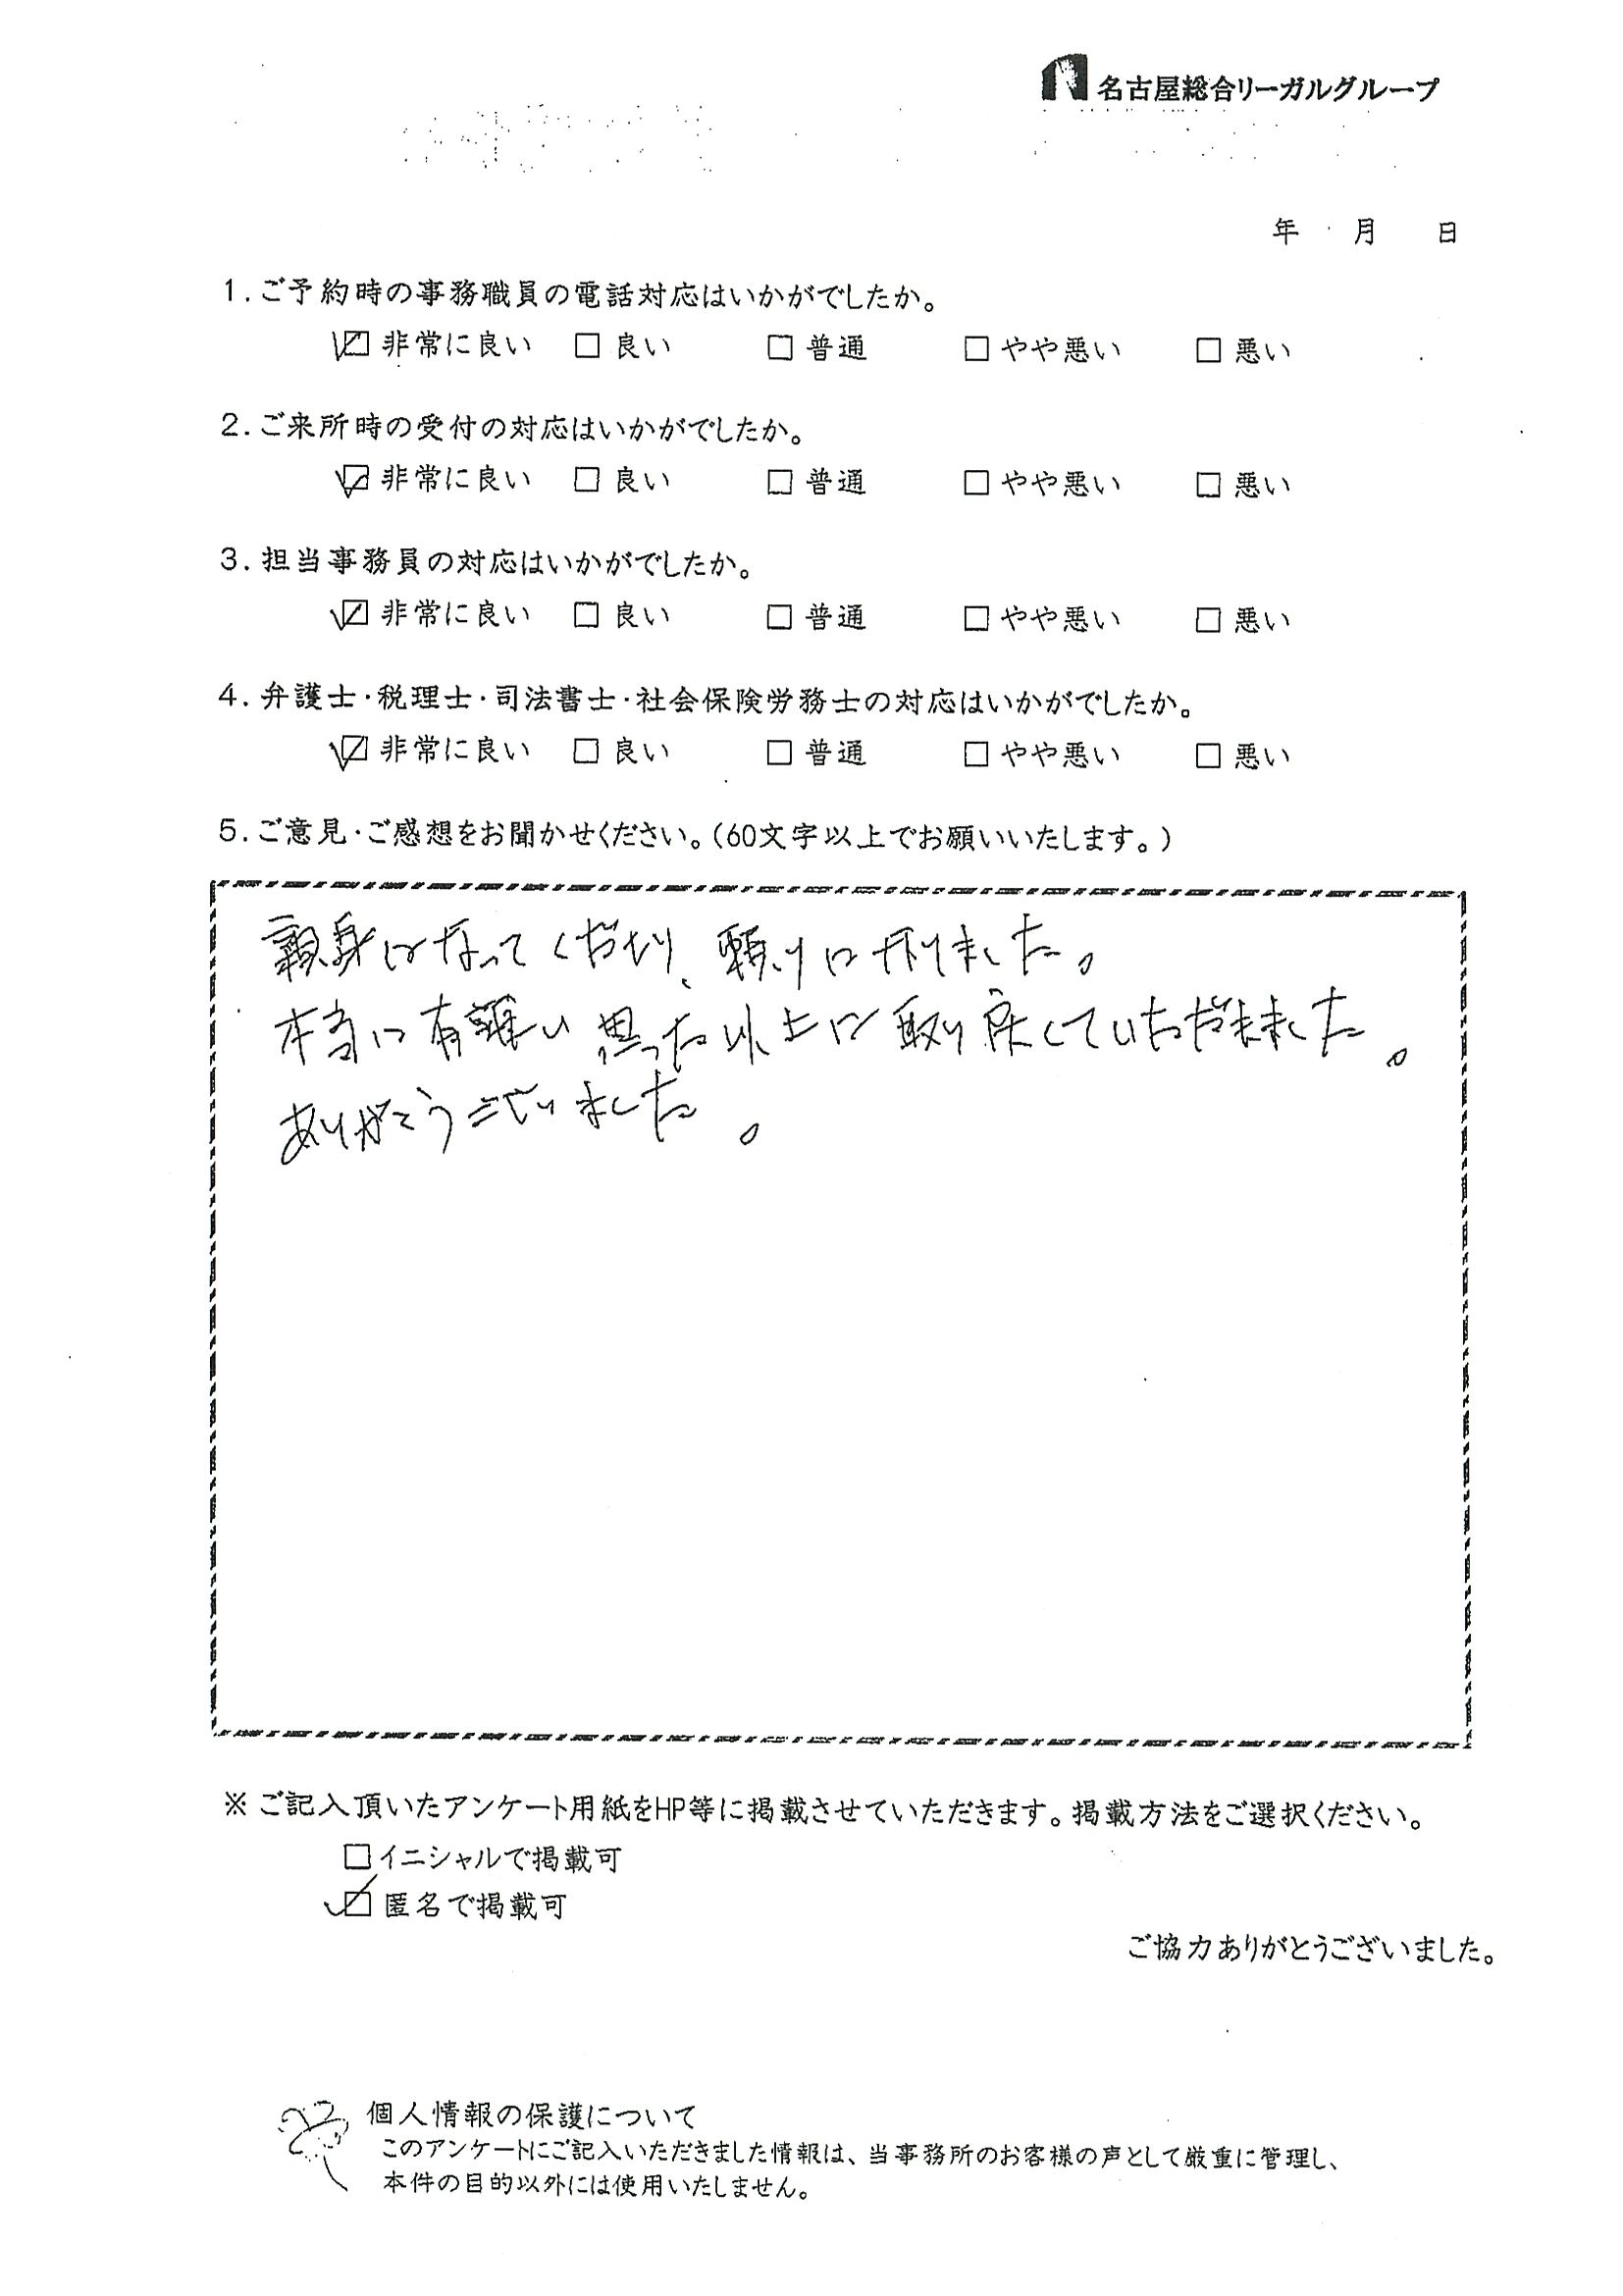 名古屋総合リーガルグループ
年 月 日
1.ご予約時の事務職員の電話対応はいかがでしたか。
☑非常に良い □良い □普通 □やや悪い □悪い
2.ご来所時の受付の対応はいかがでしたか。
☑非常に良い □良い □普通 □やや悪い □悪い
3.担当事務員の対応はいかがでしたか。
☑非常に良い □良い □普通 □やや悪い □悪い
4.弁護士・税理士・司法書士・社会保険労務士の対応はいかがでしたか。
☑非常に良い □良い □普通 □やや悪い □悪い
5.ご意見・ご感想をお聞かせください。(60文字以上でお願いいたします。)
親身になってくださり、頼りになりました。
本当に有難い思った以上に取り戻していただきました。
ありがとうございました。
※ご記入頂いたアンケート用紙をHP等に掲載させていただきます。掲載方法をご選択ください。
□イニシャルで掲載可
☑匿名で掲載可
ご協力ありがとうございました。
個人情報の保護について
このアンケートにご記入いただきました情報は、当事務所のお客様の声として厳重に管理し、
本件の目的以外には使用いたしません。